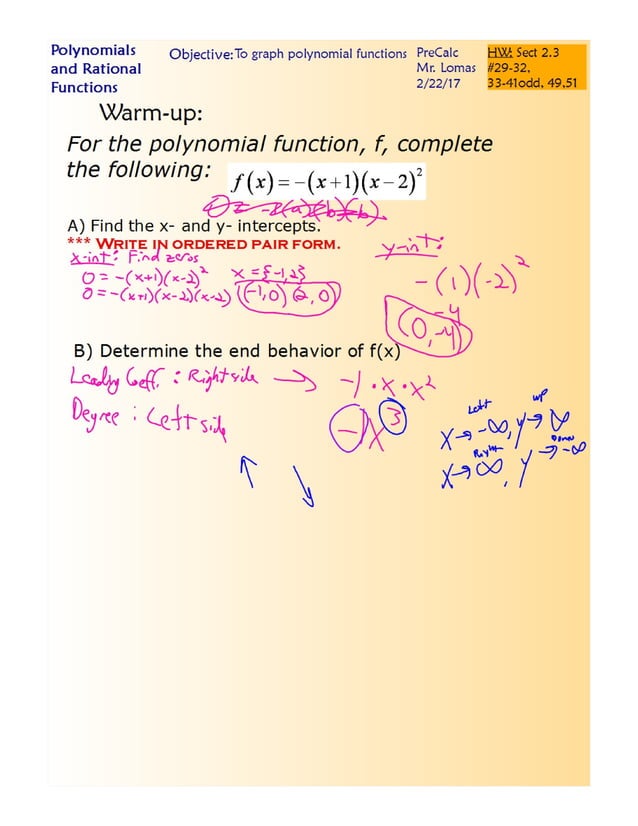 Polynomials
and Rational
Functions
Objective: To graph polynomial functions
PreCalc
Mr. Lomas
2/22/17
HW: Sect 2.3
#29-32,
33-41odd, 49,51
Warm-up:
For the polynomial function, f, complete
the following: f(x)=-(x+1)(x-2)²
A) Find the x- and y- intercepts.
*** WRITE IN ORDERED PAIR FORM.
x-int: Find zeros
0 = -(x+1)(x-2)² x = {-1,2}
0 = -(x+1)(x-2)(x-2) (-1,0) (2,0)
y-int:
-(1)(-2)²
-4
(0,-4)
B) Determine the end behavior of f(x)
Leading Coeff. : Right side → -1 · x · x²
Degree : Left side -1x³
Left up
x → -∞, y → ∞
Right Down
x → ∞, y → -∞